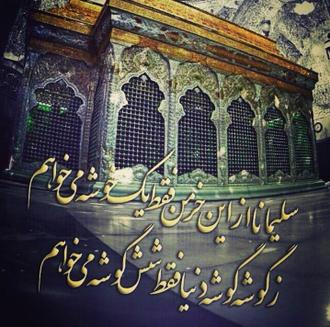 سلیمانا از این خرمن فقط یک خوشه می خواهم
ز گوشه گوشه دنیا فقط شش گوشه می خواهم